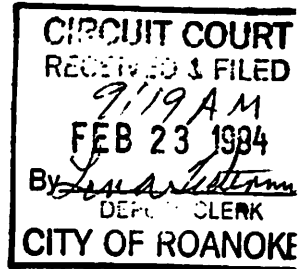 CIRCUIT COURT
RECEIVED & FILED
9:19 AM
FEB 23 1984
By
DEPUTY CLERK
CITY OF ROANOKE